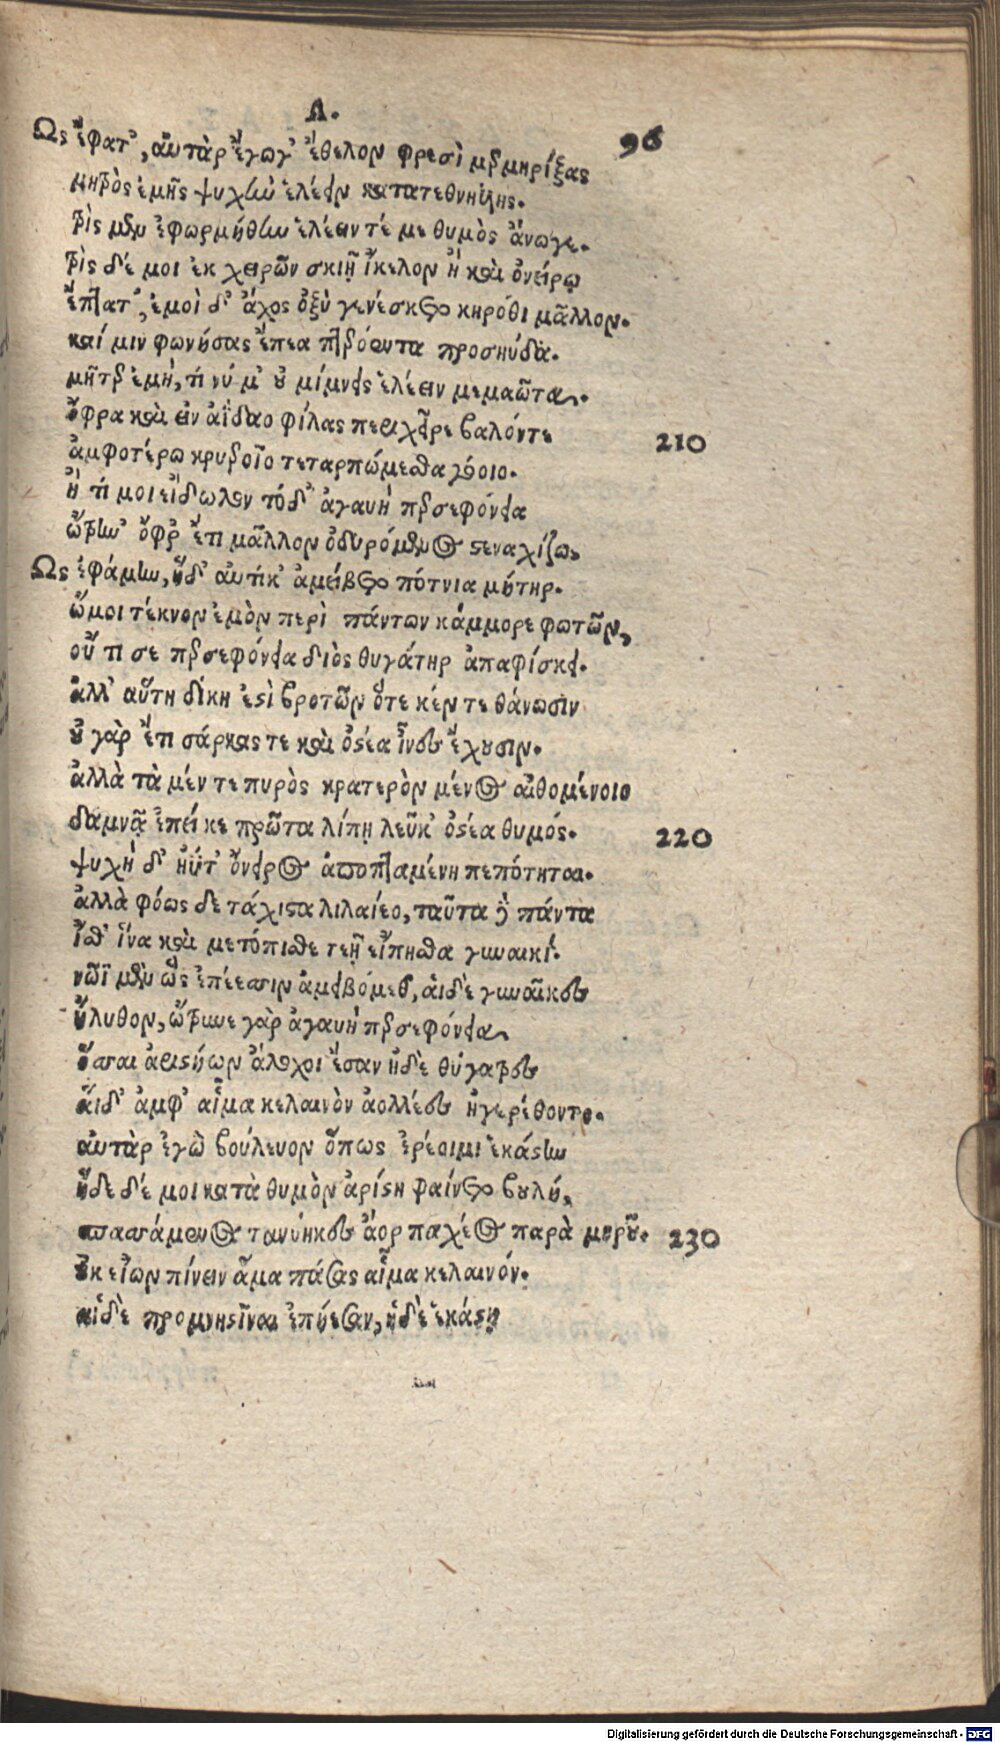 Λ.
96
Ως ἔφατ', αὐτὰρ ἔγωγ' ἔθελον φρεσὶ μερμηρίξας
μητρὸς ἐμῆς ψυχὴν ἑλέειν κατατεθνηίης.
τρὶς μὲν ἐφωρμήθην ἑλέειν τέ με θυμὸς ἄνωγε.
τρὶς δέ μοι ἐκ χειρῶν σκιῇ ἴκελον ἢ καὶ ὀνείρῳ
ἔπτατ', ἐμοὶ δ' ἄχος ὀξὺ γενέσκετο κηρόθι μᾶλλον.
καί μιν φωνήσας ἔπεα πτερόεντα προσηύδα.
μῆτερ ἐμὴ, τί νύ μ' οὐ μίμνεις ἑλέειν μεμαῶτα,
ὄφρα καὶ ἐν ἀΐδαο φίλας περὶ χεῖρε βαλόντε
210
ἀμφοτέρω κρυεροῖο τεταρπώμεσθα γόοιο.
ἦ τί μοι εἴδωλον τόδ' ἀγαυὴ περσεφόνεια
ὤτρυν' ὄφρ' ἔτι μᾶλλον ὀδυρόμενος στεναχίζω.
Ως ἐφάμην, ἡδ' αὐτίκ' ἀμείβετο πότνια μήτηρ.
ὤμοι τέκνον ἐμὸν περὶ πάντων κάμμορε φωτῶν,
οὔ τι σε περσεφόνεια διὸς θυγάτηρ ἀπαφίσκει.
ἀλλ' αὕτη δίκη ἐστὶ βροτῶν ὅτε κέν τε θάνωσιν
οὐ γὰρ ἔτι σάρκας τε καὶ ὀστέα ἶνες ἔχουσιν.
ἀλλὰ τὰ μέν τε πυρὸς κρατερὸν μένος αἰθομένοιο
δαμνᾷ ἐπεί κε πρῶτα λίπῃ λεύκ' ὀστέα θυμός.
220
ψυχὴ δ' ἠΰτ' ὄνειρος ἀποπταμένη πεπότηται.
ἀλλὰ φόως δὲ τάχιστα λιλαίεο, ταῦτα δὲ πάντα
ἴσθ' ἵνα καὶ μετόπισθε τεῇ εἴπησθα γυναικί.
νῶϊ μὲν ὣς ἐπέεσσιν ἀμειβόμεθ', αἱ δὲ γυναῖκες
ἤλυθον, ὤτρυνε γὰρ ἀγαυὴ περσεφόνεια,
ὅσσαι ἀριστήων ἄλοχοι ἔσαν ἠδὲ θύγατρες
αἵδ' ἀμφ' αἷμα κελαινὸν ἀολλέες ἠγερέθοντο.
αὐτὰρ ἐγὼ βούλευον ὅπως ἐρέοιμι ἑκάστην
ἥδε δέ μοι κατὰ θυμὸν ἀρίστη φαίνετο βουλή,
σπασσάμενος τανύηκες ἄορ παχέος παρὰ μηροῦ.
230
οὐκ εἴων πίνειν ἅμα πάσας αἷμα κελαινόν.
αἱ δὲ προμνηστῖναι ἐπήεσαν, ἡδὲ ἑκάστη
Digitalisierung gefördert durch die Deutsche Forschungsgemeinschaft - DFG